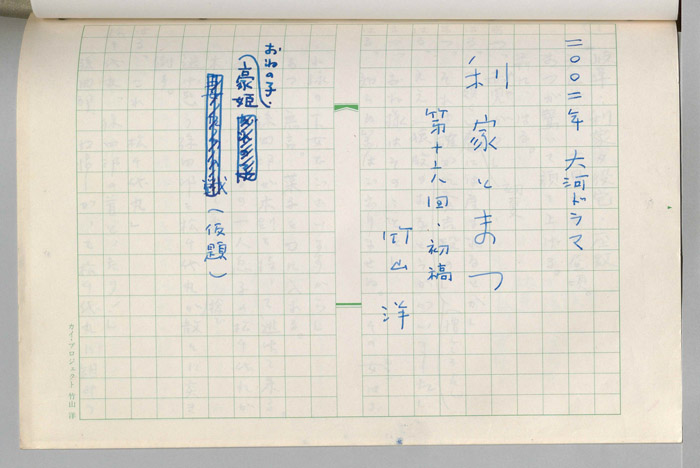 二〇〇二年 大河ドラマ
利家とまつ
第十六回・初稿
竹山 洋
おねの子・
豪姫
戦(仮題)
カイ・プロジェクト 竹山 洋